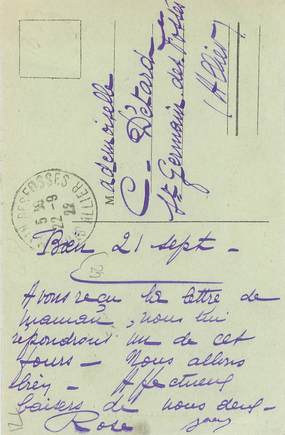 Mademoiselle
C. Détard
St Germain des Fossés
(Allier)
15 35
22-9
22
ALLIER
21 sept -
Avons reçu la lettre de
maman, nous lui
répondrons un de ces
jours - Nous allons
bien - Affectueux
baisers de nous deux -
Rose